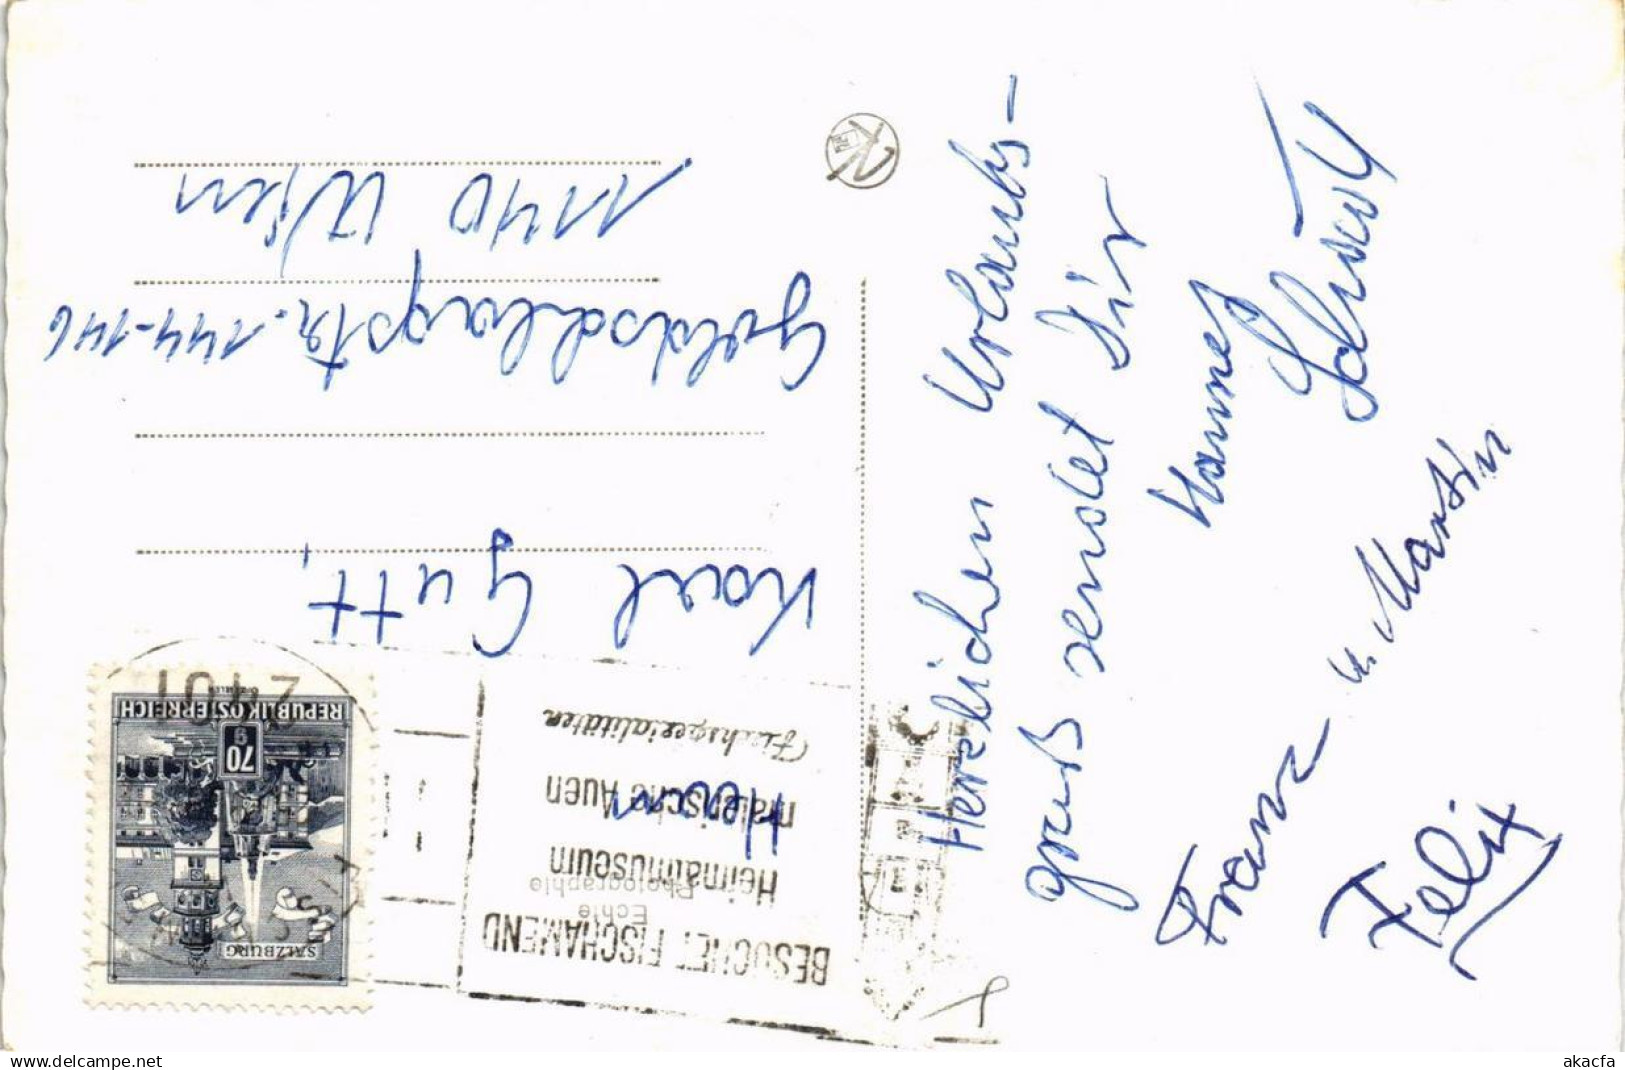 Herzlichen Urlaubs-
gruß sendet Dir
Hannes
Franz u. Martin
Felix
Echte
Photographie
Herrn
Karl Gutt,
Goldschlagstr. 144-146
1140 Wien
BESUCHET FISCHAMEND
Heimatmuseum
malerische Auen
Fischspezialitäten
2401
SALZBURG
70 g
REPUBLIK ÖSTERREICH
delcampe.net
akacfa